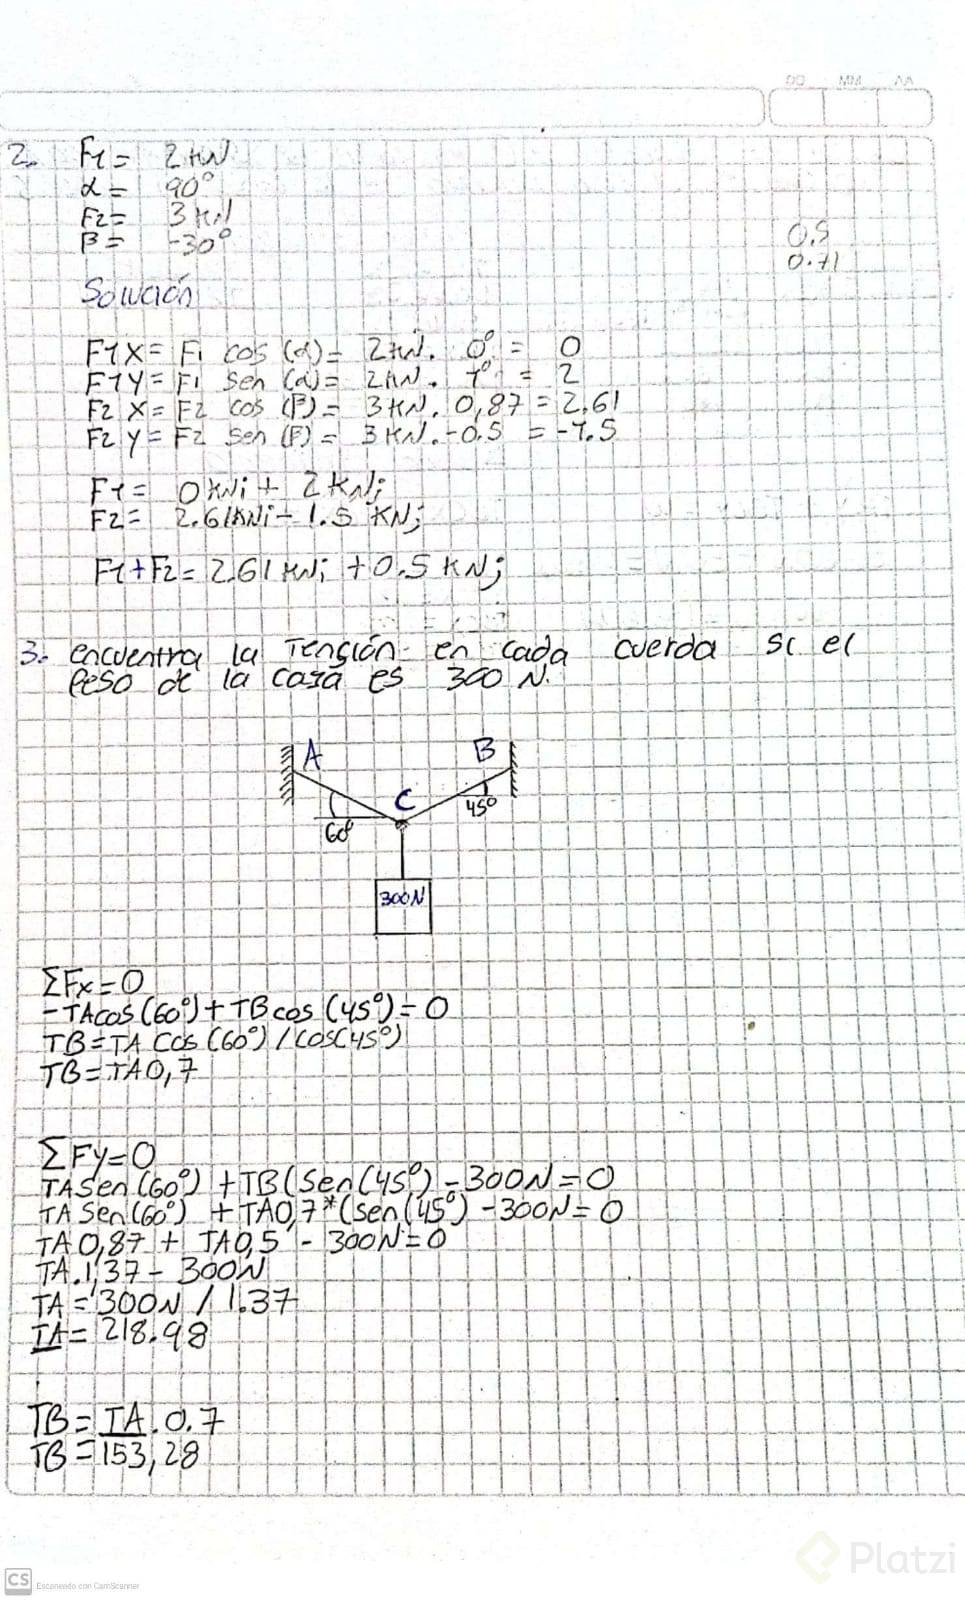 DD MM AA
2. F1 = 2 kN
α = 90°
F2 = 3 kN
β = -30°
0.5
0.71
Solución
F1X = F1 cos (α) = 2kN. 0° = 0
F1Y = F1 Sen (α) = 2kN. 1° = 2
F2 X = F2 cos (β) = 3 KN. 0,87 = 2.61
F2 Y = F2 Sen (β) = 3 KN. -0.5 = -1.5
F1 = 0 kNi + 2 kNj
F2 = 2.61kNi - 1.5 KNj
F1+F2 = 2.61 kNi + 0.5 kNj
3. encuentra la Tensión en cada cuerda si el
peso de la casa es 300 N.
A B
C
60° 45°
300N
ΣFx=0
-TAcos(60°)+TBcos(45°)=0
TB=TA cos(60°)/cos(45°)
TB=TA0,7
ΣFy=0
TASen(60°) +TB(Sen(45°) -300N=0
TA Sen(60°) +TA0,7*(sen(45°) -300N=0
TA 0,87 + TA0,5 - 300N=0
TA.1,37 - 300N
TA = 300N / 1.37
TA = 218.98
TB = TA.0.7
TB = 153,28
CS Escaneado con CamScanner
Platzi